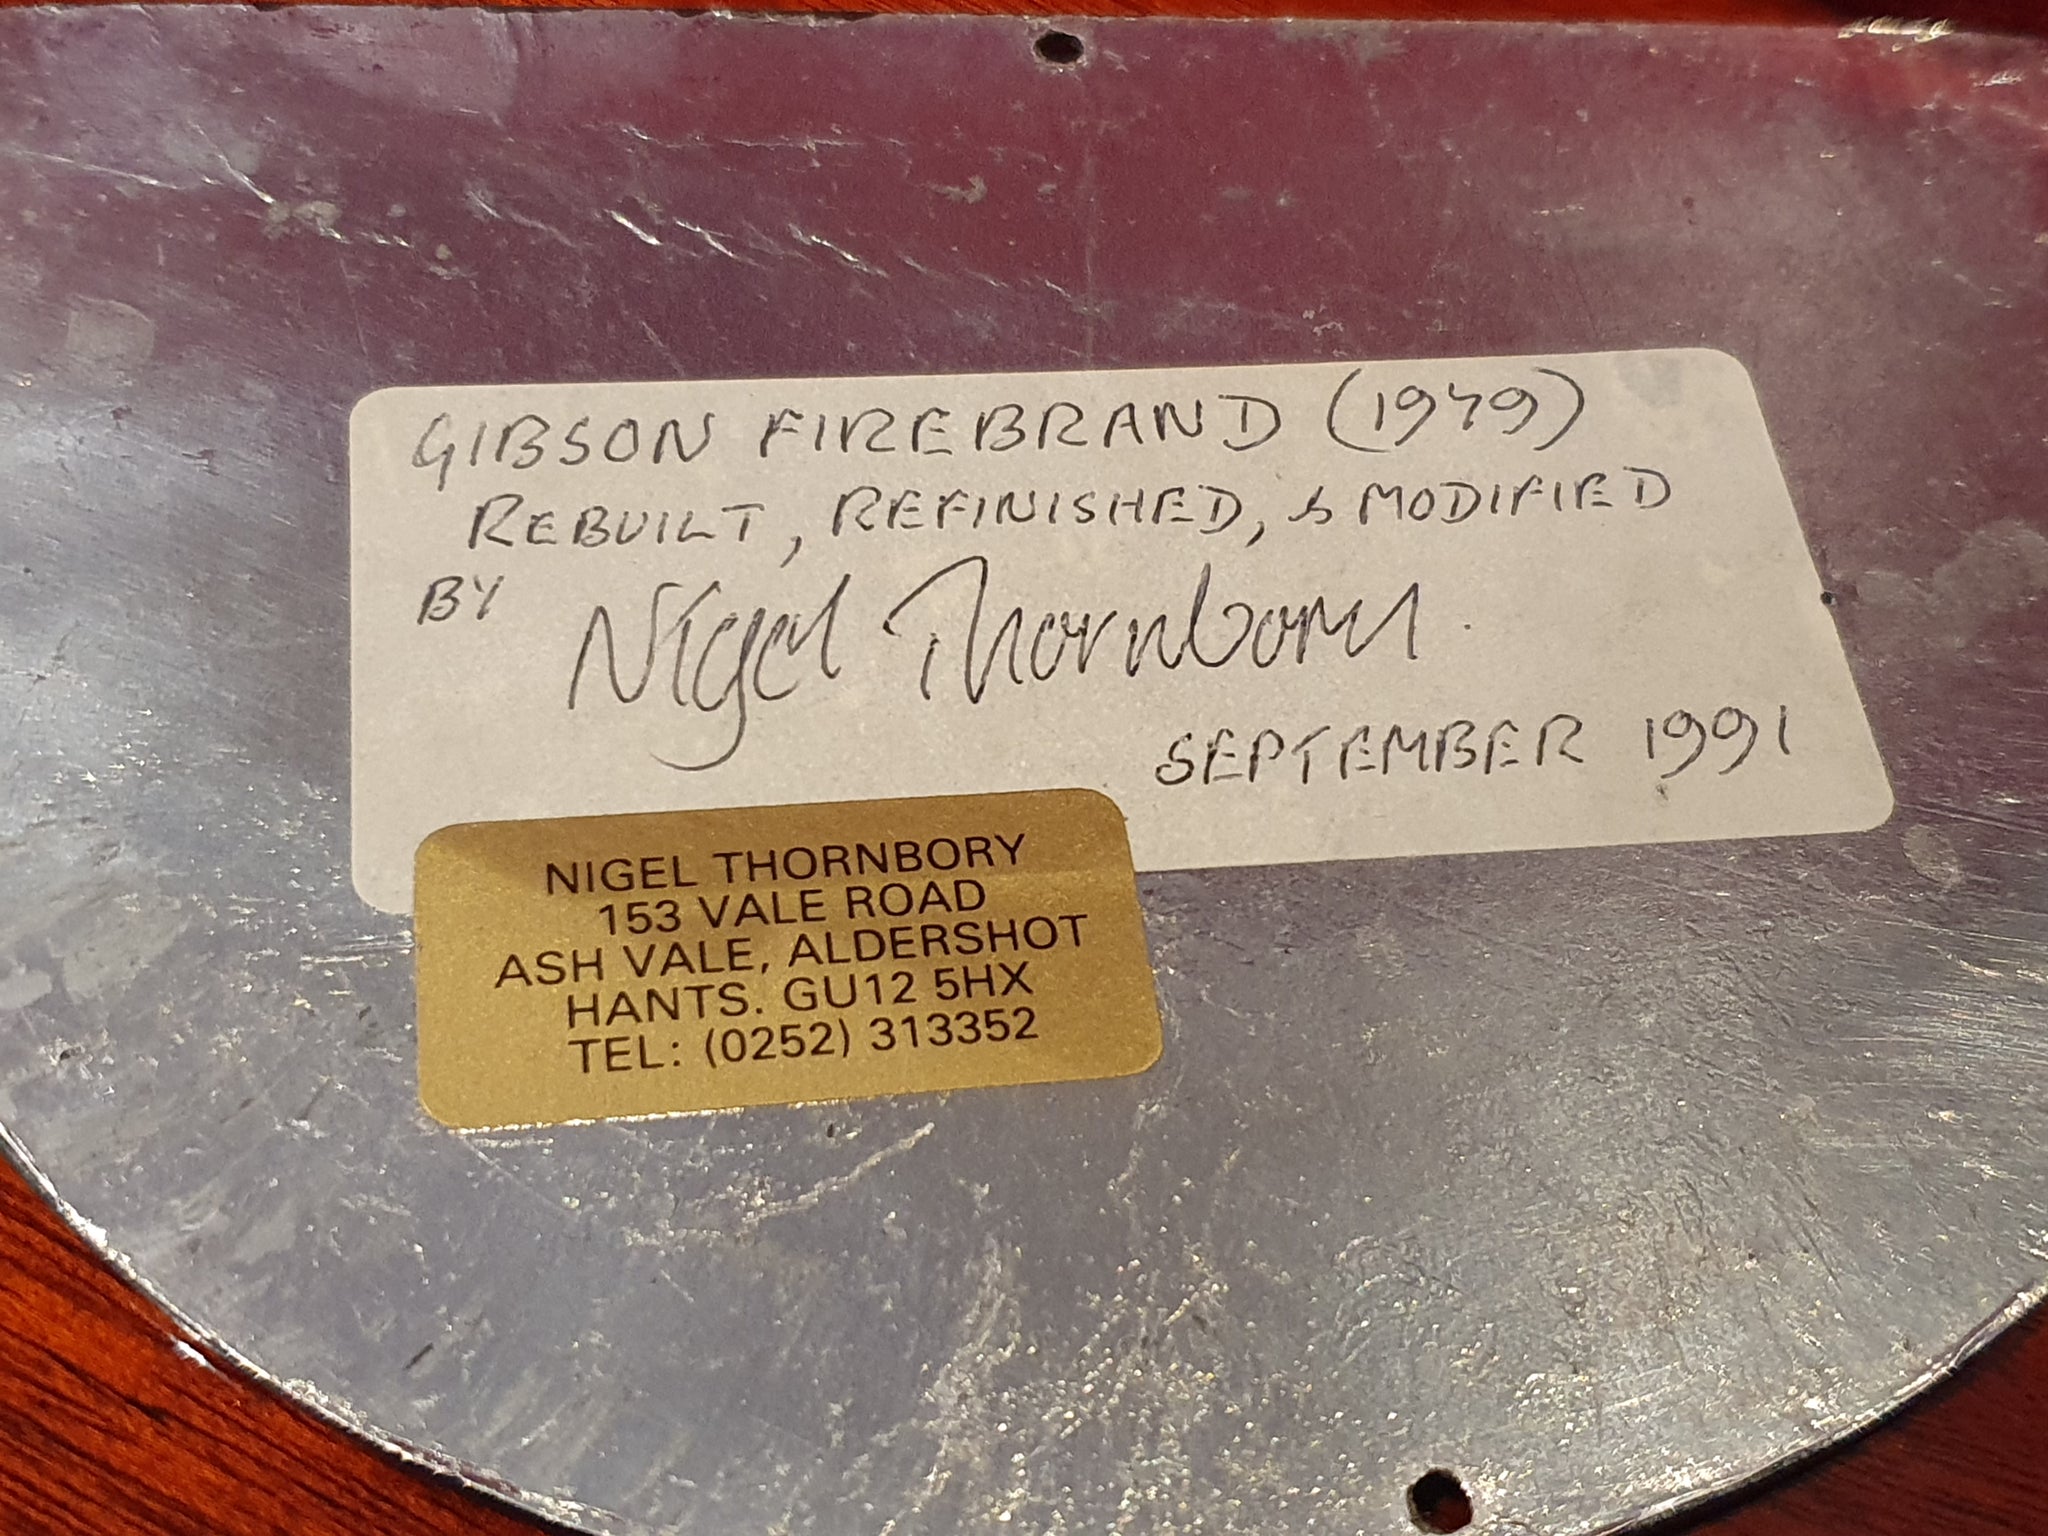 GIBSON FIREBRAND (1979)
REBUILT, REFINISHED, & MODIFIED
BY Nigel Thornbory
SEPTEMBER 1991
NIGEL THORNBORY
153 VALE ROAD
ASH VALE, ALDERSHOT
HANTS. GU12 5HX
TEL: (0252) 313352